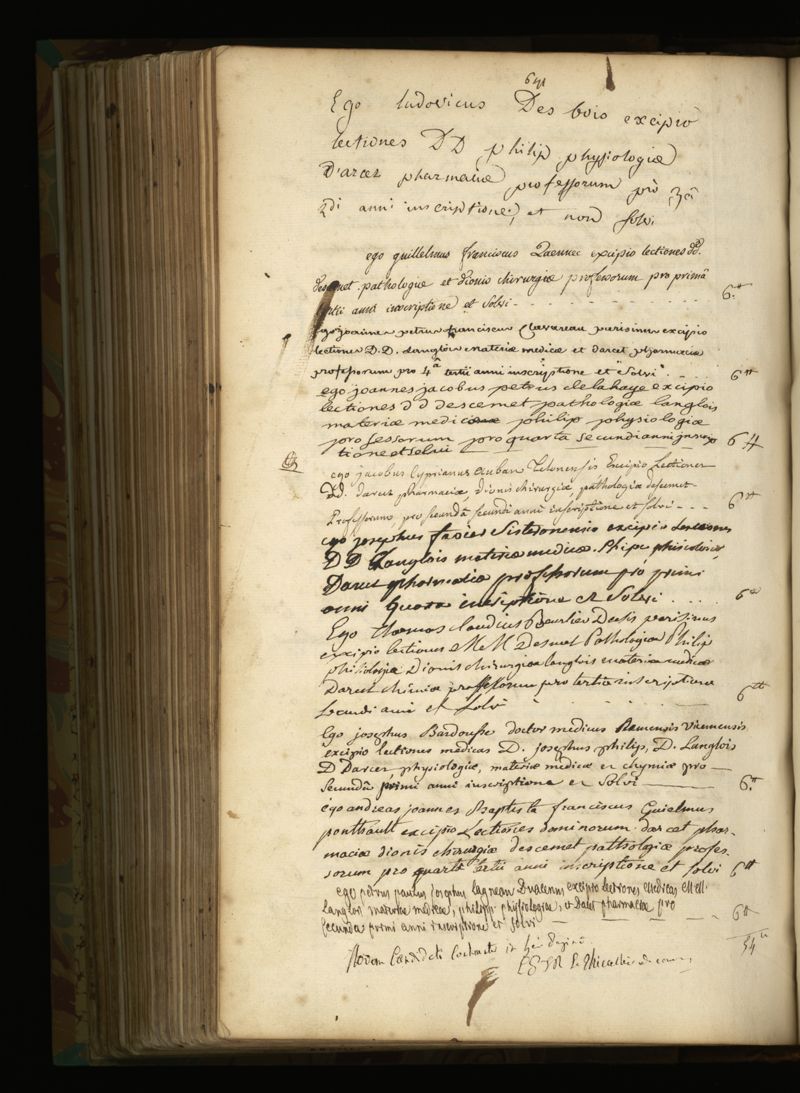 Ego ludovicus Des bois excipio
lectiones DD philip physiologiæ
D'arcet pharmaciæ professorum pro 3.a
2di anni inscriptione, et non solvi
ego guillelmus franciscus Laennec excipio lectiones dd.
descemet pathologiæ et dionis chirurgiæ professorum pro primâ
tertii anni inscriptione et solvi
6.tt
ego petrus franciscus Clavareau parisinus excipio
lectiones D.D. Langlois materiæ medicæ et darcet pharmaciæ
professorum pro 4.a tertii anni inscriptione et solvi
6 tt
ego joannes jacobus petrus delahaye excipio
lectiones dd descemet pathologiæ langlois
materiæ medicæ philip physiologiæ
professorum pro quarta secundi anni inscrip
tione et solvi
6 tt
ego jacobus Cyprianus auban excipio Lectiones
DD. darcet pharmaciæ, dionis chirurgiæ, pathologiæ descemet
Professorum, pro secundâ secundi anni inscriptione et solvi
6 tt
ego josephus favier Sisteronensis excipio Lectiones
DD Langlois materiæ medicæ Philipe
Darcet pharmaciæ professorum pro primi
anni quarta inscriptione et solvi
6 tt
Ego thomas claudius parisinus
excipio lectiones Descemet Pathologiæ Philip
Dionis chirurgiæ langlois materiæ medicæ
Darcet chimiæ professorum pro tertia inscriptione
secundi anni et solvi
6 tt
Ego josephus Bardousse doctor medicus
excipio lectiones medicas D. josephus philip, D. Langlois
D Darcet physiologiæ, materiæ medicæ et chymiæ pro
secundâ primi anni inscriptione et solvi
6.tt
ego andreas joannes Baptista franciscus Guielmus
ponthault excipio Lectiones dominorum darcet phar-
maciæ dionis chirurgiæ descemet pathologiæ profes-
sorum pro quartâ tertii anni inscriptione et solvi
6 tt
ego petrus paulus josephus lagneau excipio lectiones medicas
Langlois materiæ medicæ, philip physiologiæ, et pharmaciæ pro
secunda primi anni inscriptione et solvi
6 tt
54 tt